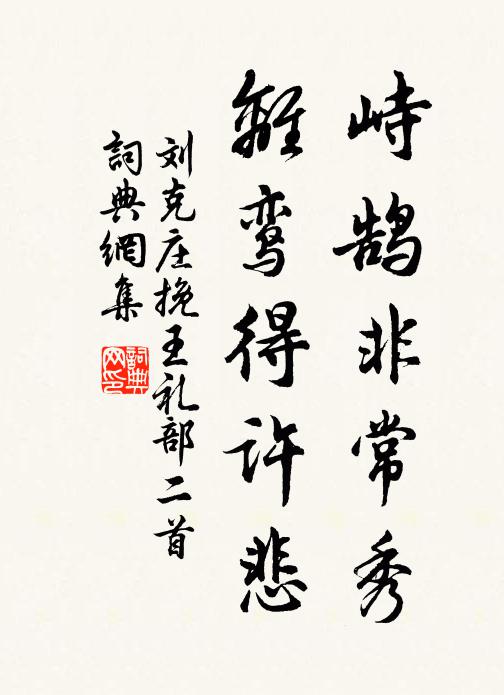 峙鹄非常秀
離鸾得许悲
刘克庄挽王礼部二首
詞典網集
詞典网印